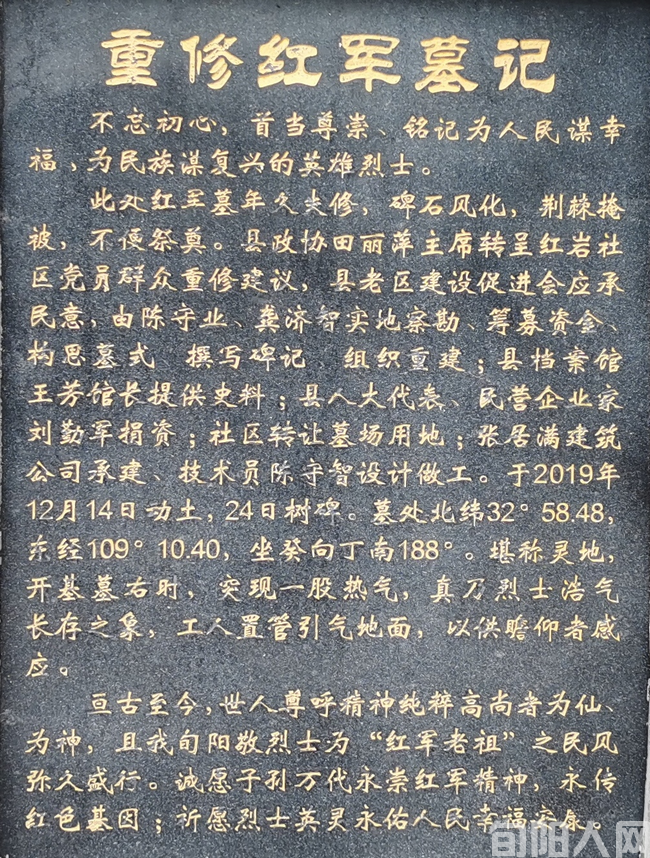 重修红军墓记
不忘初心，首当尊崇、铭记为人民谋幸
福、为民族谋复兴的英雄烈士。
此处红军墓年久失修，碑石风化，荆棘掩
被，不便祭奠。县政协田丽萍主席转呈红岩社
区党员群众重修建议，县老区建设促进会应承
民意，由陈守业、龚济智实地察勘、筹募资金、
构思墓式 撰写碑记 组织重建；县档案馆
王芳馆长提供史料；县人大代表、民营企业家
刘勤军捐资；社区转让墓场用地；张居满建筑
公司承建、技术员陈守智设计做工。于2019年
12月14日动土，24日树碑。墓处北纬32° 58.48,
东经109° 10.40，坐癸向丁南188°。堪称灵地，
开基墓右时，突现一股热气，真乃烈士浩气
长存之象，工人置管引气地面，以供瞻仰者感
应。
亘古至今，世人尊呼精神纯粹高尚者为仙、
为神，且我旬阳敬烈士为“红军老祖”之民风
弥久盛行。诚愿子孙万代永崇红军精神，永传
红色基因；祈愿烈士英灵永佑人民幸福安康。
旬阳人网